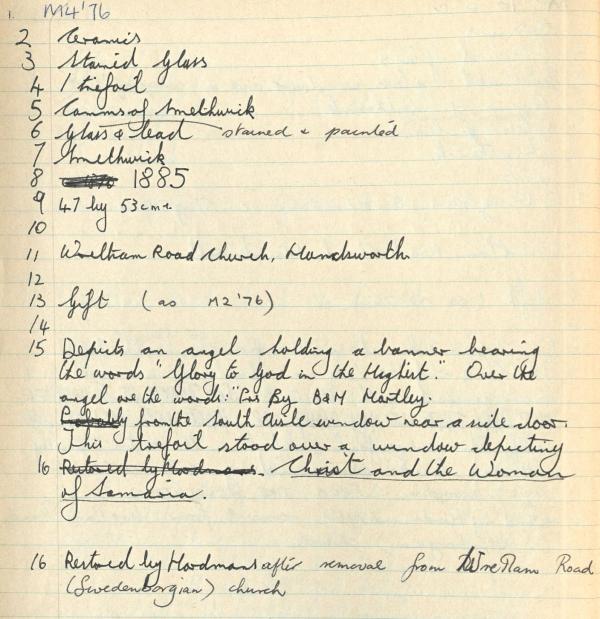 1. M4'76
2 Ceramics
3 Stained Glass
4 1 trefoil
5 Camms of Smethwick
6 Glass & lead stained & painted
7 Smethwick
8 1885
9 47 by 53cms
10
11 Wretham Road Church, Handsworth
12
13 Gift (as M2'76)
14
15 Depicts an angel holding a banner bearing
the words "Glory to God in the Highest." Over the
angel are the words: " By B&M Martley.
Probably from the South Aisle window near a side door.
This trefoil stood over a window depicting
16 Restored by Hardmans. Christ and the Woman
of Samaria.
16 Restored by Hardmans after removal from Wretham Road
(Swedenborgian) church